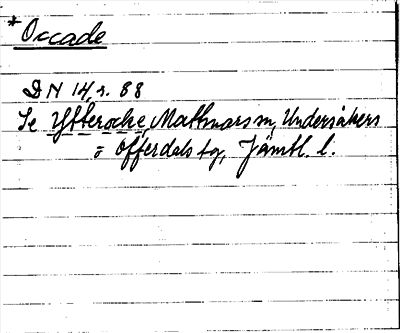 *Occade
DN 14, s. 88
Se Ytteroche, Mattmars sn, Undersåkers
o Offerdals tg, Jämtl. l.